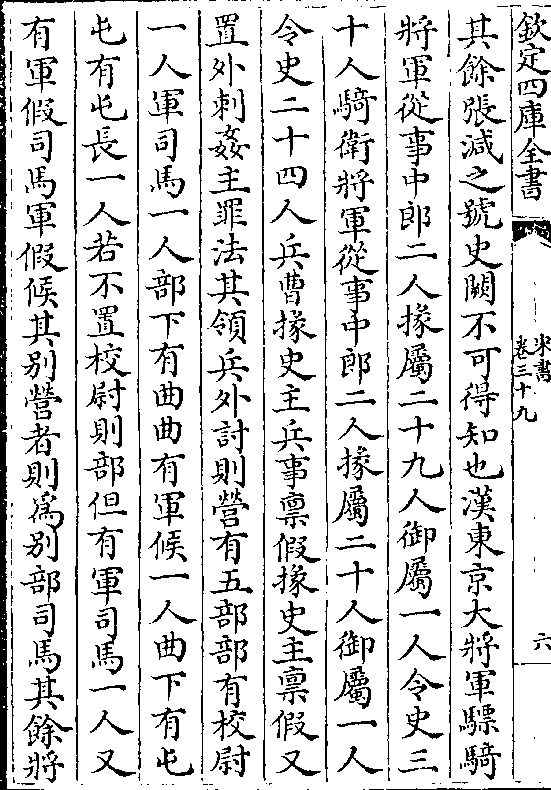 欽定四庫全書
宋書
卷三十九
六
其餘張減之號史闕不可得知也漢東京大將軍驃騎
將軍從事中郎二人掾屬二十九人御屬一人令史三
十人騎衛將軍從事中郎二人掾屬二十人御屬一人
令史二十四人兵曹掾史主兵事禀假掾史主禀假又
置外刺姦主罪法其領兵外討則營有五部部有校尉
一人軍司馬一人部下有曲曲有軍候一人曲下有屯
屯有屯長一人若不置校尉則部但有軍司馬一人又
有軍假司馬軍假候其别營者則為别部司馬其餘將